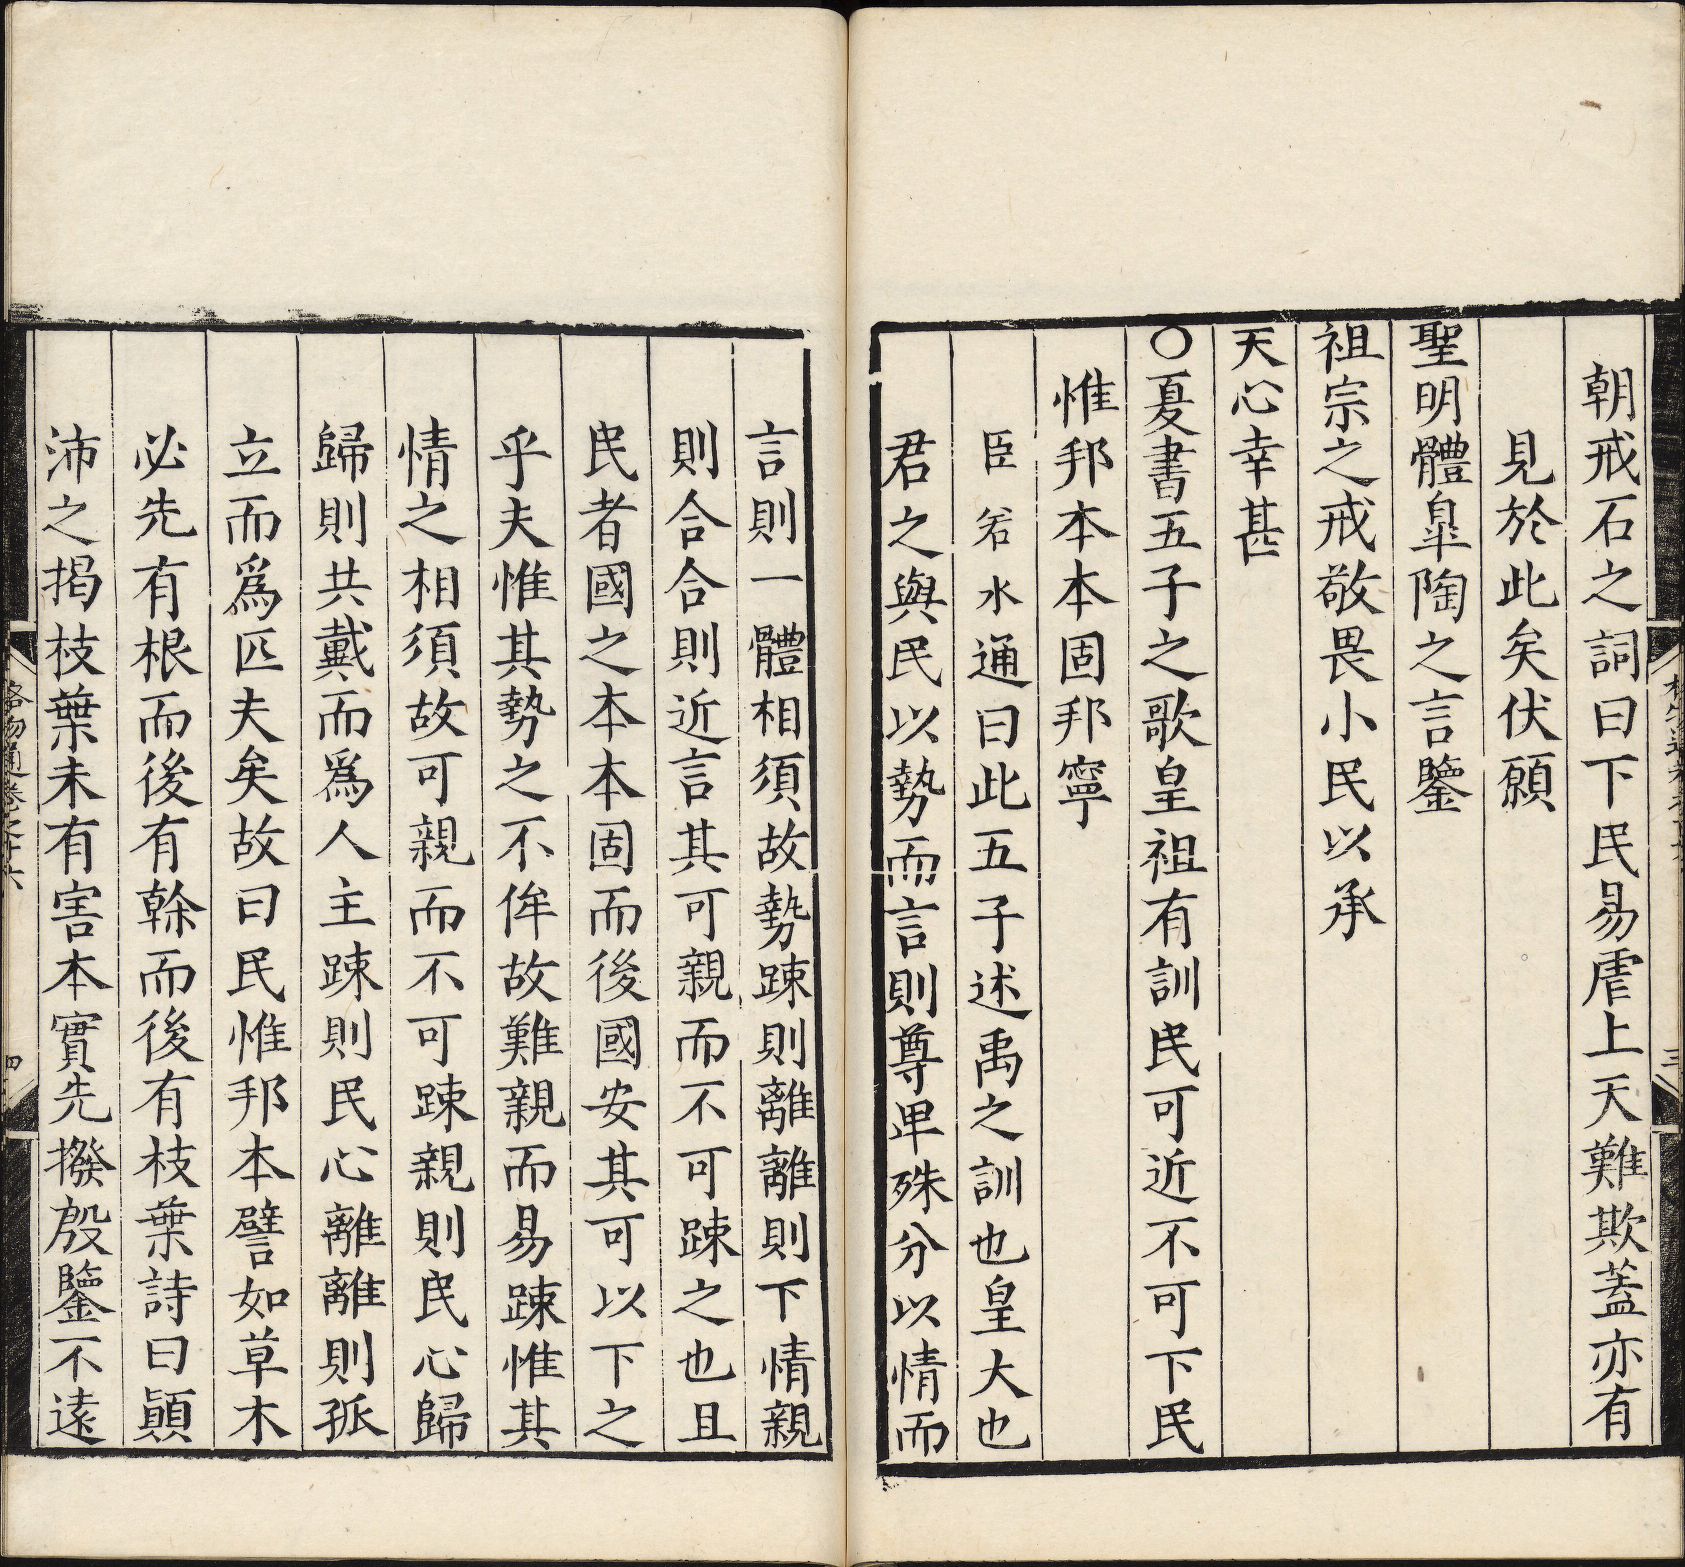 朝戒石之詞曰下民易虐上天難欺蓋亦有
見於此矣伏願
聖明體臯陶之言鑒
祖宗之戒敬畏小民以承
天心幸甚
○夏書五子之歌皇祖有訓民可近不可下民
惟邦本本固邦寧
臣若水通曰此五子述禹之訓也皇大也
君之與民以勢而言則尊卑殊分以情而
言則一體相須故勢踈則離離則下情親
則合合則近言其可親而不可踈之也且
民者國之本本固而後國安其可以下之
乎夫惟其勢之不侔故難親而易踈惟其
情之相須故可親而不可踈親則民心歸
歸則共戴而爲人主踈則民心離離則孤
立而爲匹夫矣故曰民惟邦本譬如草木
必先有根而後有榦而後有枝葉詩曰顚
沛之揭枝葉未有害本實先撥殷鑒不遠
格物通卷之十六
四
三